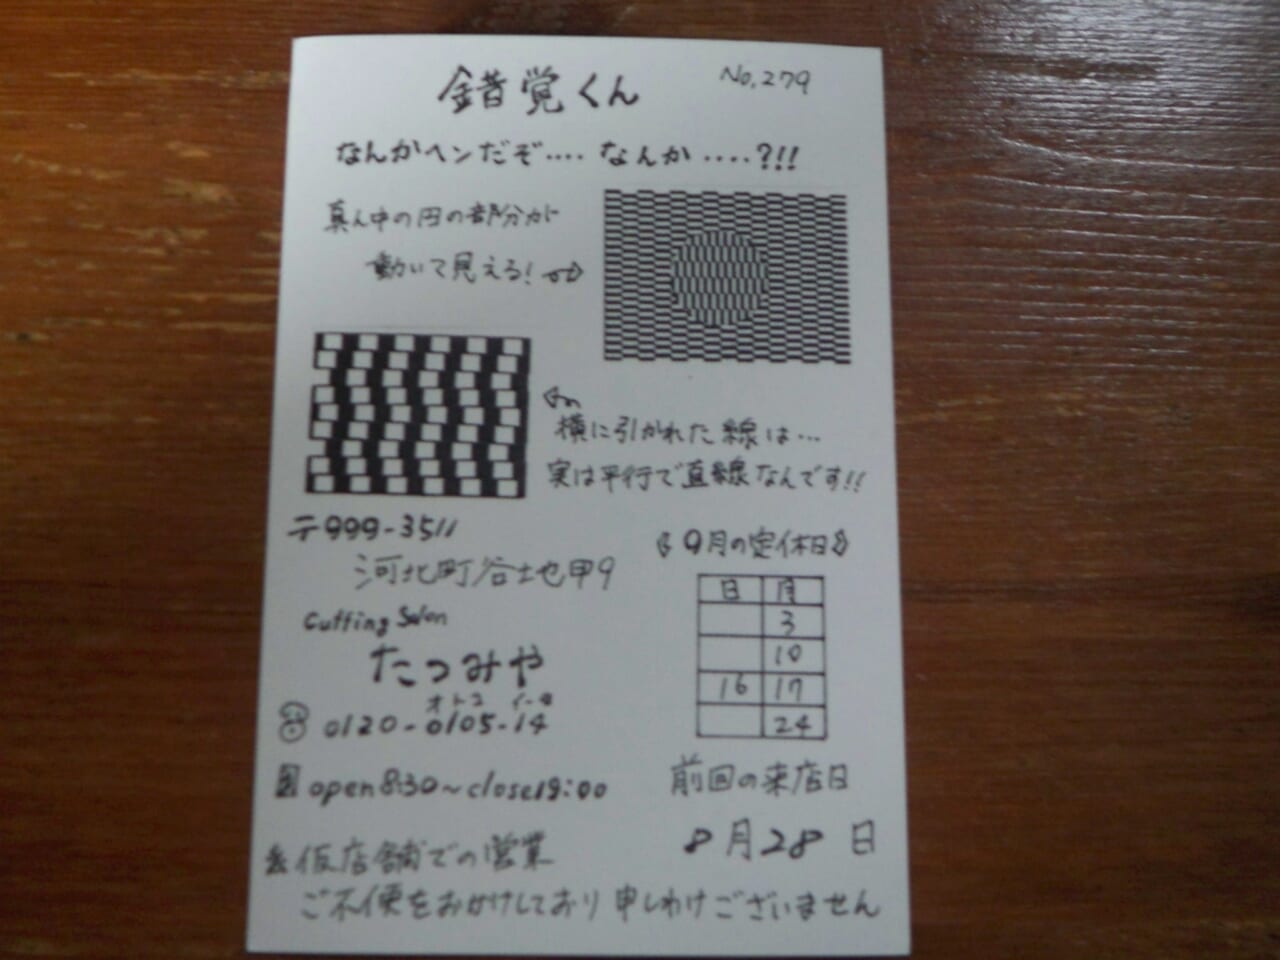 錯覚くん No.279
なんかヘンだぞ.... なんか ....?!!
真ん中の円の部分が
動いて見える!
横に引かれた線は...
実は平行で直線なんです!!
〒999-3511
河北町谷地甲9
Cutting Salon
たつみや
オトコ イーヨ
0120-0105-14
open 8:30~close19:00
《9月の定休日》
日 月
3
10
16 17
24
前回の来店日
8月28日
仮店舗での営業
ご不便をおかけしており 申しわけございません